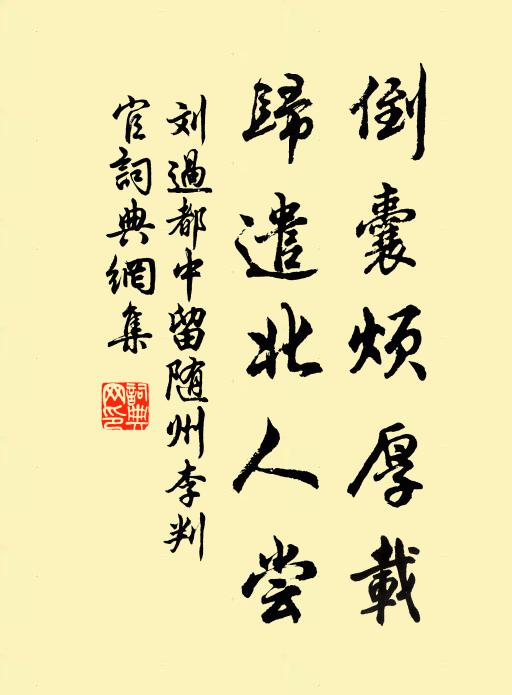 倒囊烦厚載
歸遣北人尝
刘過都中留随州李判
官詞典網集
詞典網印